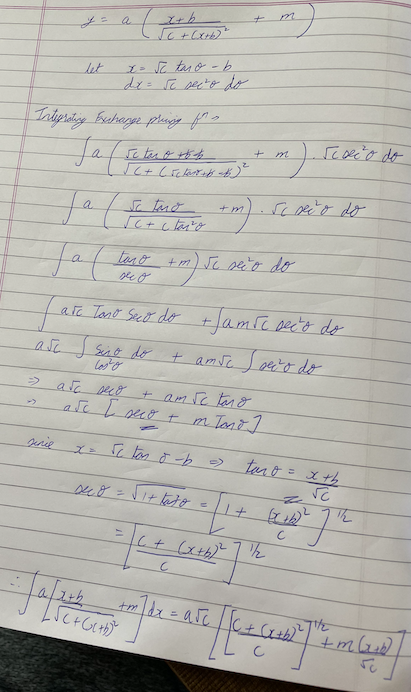 y = a ( (x+b)/√(c + (x+b)²) + m )
let x = √c tanθ - b
dx = √c sec²θ dθ
Integrating Exchange pricing fⁿ →
∫ a ( (√c tanθ + b - b)/√(c + (√c tanθ + b - b)²) + m ) . √c sec²θ dθ
∫ a ( (√c tanθ)/√(c + c tan²θ) + m ) . √c sec²θ dθ
∫ a ( tanθ/secθ + m ) √c sec²θ dθ
∫ a√c Tanθ Secθ dθ + ∫ a m √c sec²θ dθ
a√c ∫ sinθ/cos²θ dθ + am√c ∫ sec²θ dθ
⇒ a√c secθ + am√c tanθ
⇒ a√c [ secθ + m Tanθ ]
since x = √c tanθ - b ⇒ tanθ = (x+b)/√c
secθ = √(1+tan²θ) = [ 1 + (x+b)²/c ]^1/2
= [ (c + (x+b)²)/c ]^1/2
∴ ∫ a [ (x+b)/√(c+(x+b)²) + m ] dx = a√c [ [ (c + (x+b)²)/c ]^1/2 + m (x+b)/√c ]